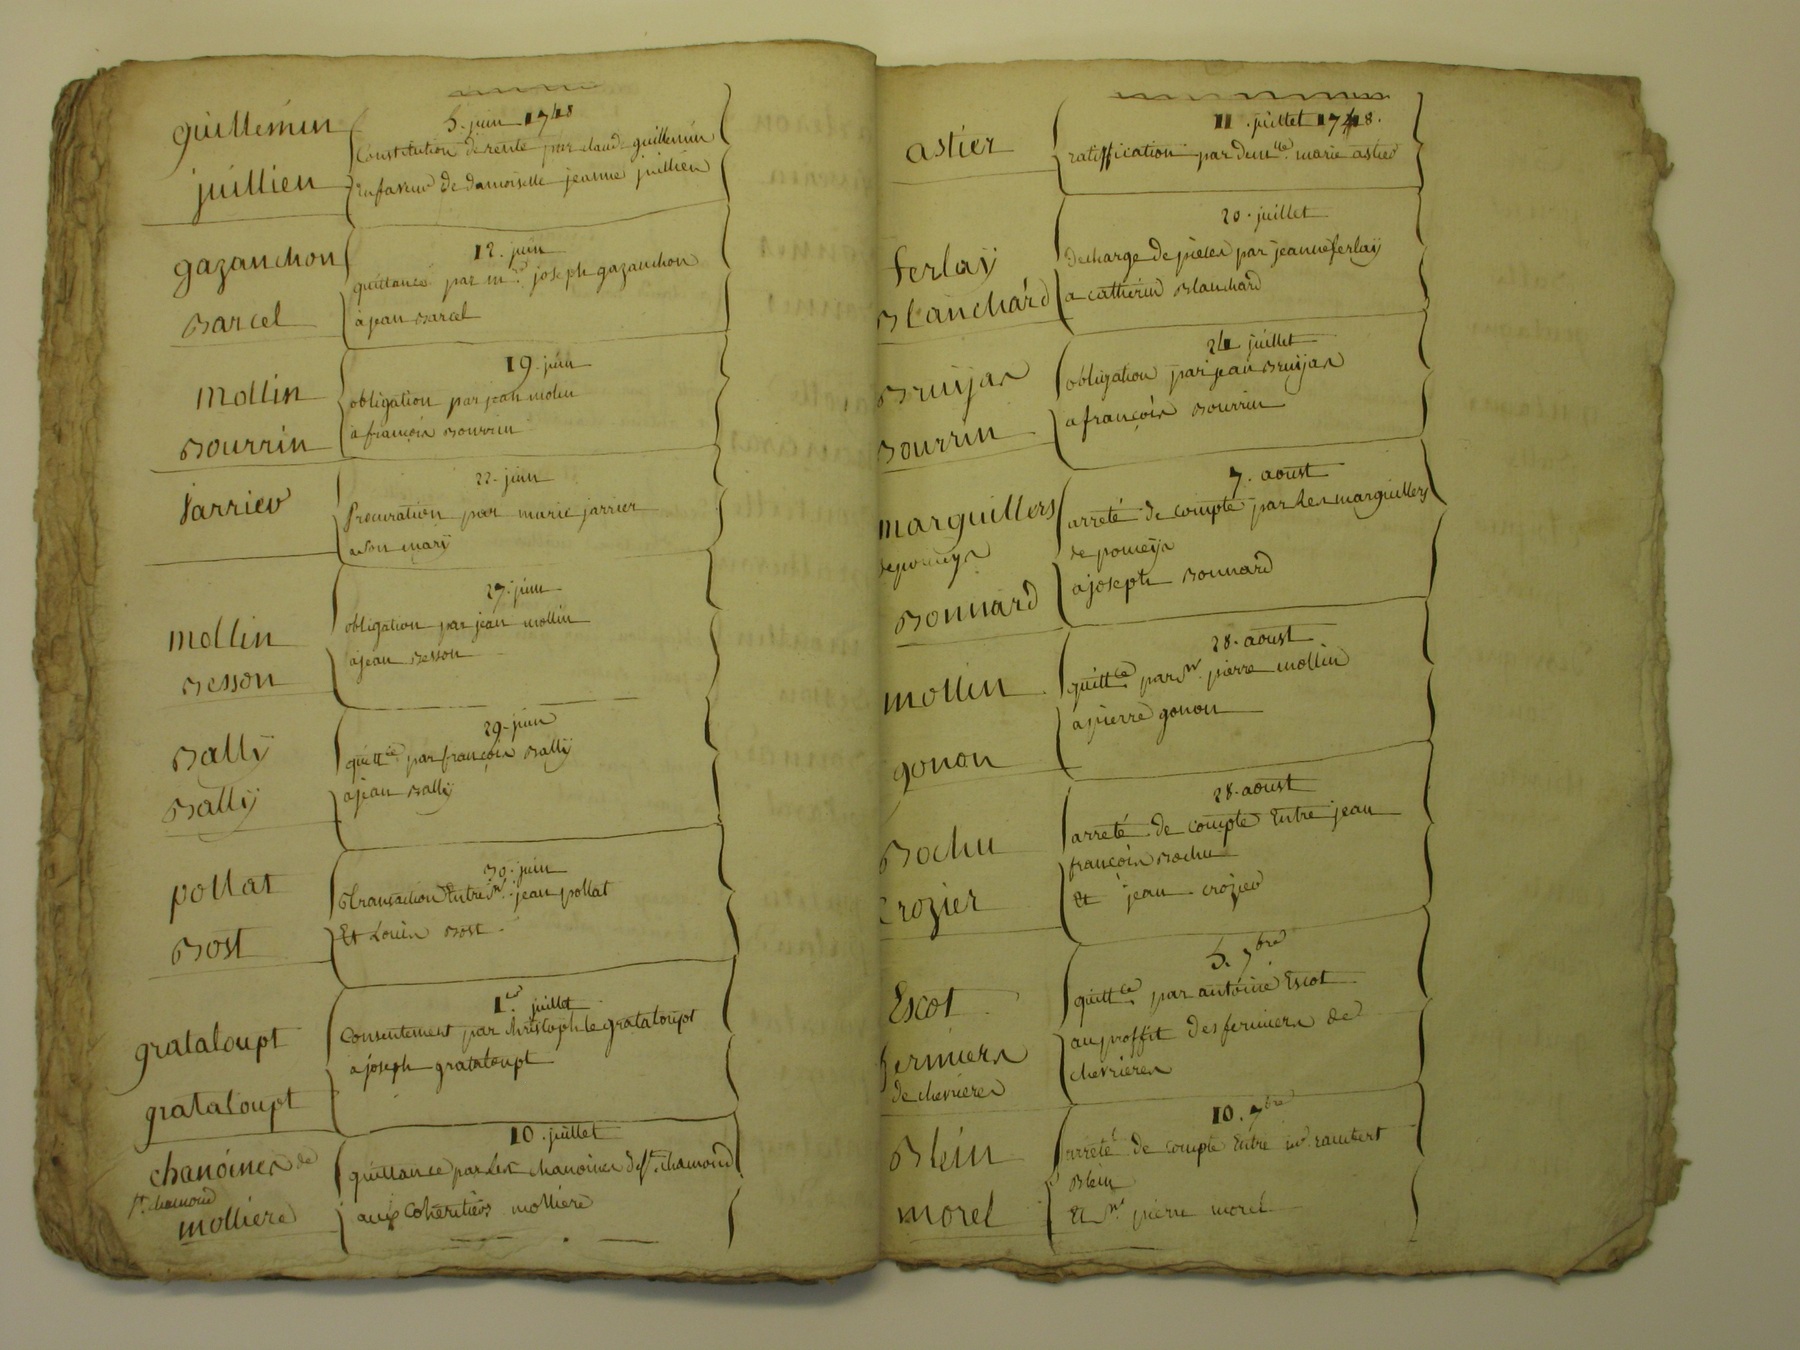 guillemin
juillien
5. juin 1748
Constitution de rente par claude guillemin
En faveur de damoiselle jeanne juillien
gazanchon
Barcel
12. juin
quittance par mre joseph gazanchon
à jean Barcel
mollin
Bourrin
19. juin
obligation par jean molin
à françois Bourrin
jarrier
22. juin
Procuration par marie jarrier
a son marÿ
mollin
Besson
27. juin
obligation par jean mollin
à jean Besson
Ballÿ
Ballÿ
29. juin
quittce par françois Ballÿ
à jean Ballÿ
pollat
Bost
30. juin
transaction Entre sr jean pollat
Et Louis Bost
grataloupt
grataloupt
1er juillet
Consentement par christophle grataloupt
a joseph grataloupt
chanoines de
st chamond
molliere
10. juillet
quittance par Les chanoines de st chamond
aux Coheritiers molliere
astier
11. juillet 1748.
ratiffication par demlle marie astier
ferlaÿ
Blanchard
20. juillet
decharge de pieces par jeanne ferlaÿ
a catherin Blanchard
Bruijas
Bourrin
24 juillet
obligation par jean Bruijas
a françois Bourrin
marguillers
de pomeÿs
Bonnard
7. aoust
arreté de compte par Les marguillers
de pomeÿs
a joseph Bonnard
mollin
gonon
28. aoust
quittce par sr pierre mollin
a pierre gonon
Bochu
Crozier
28. aoust
arreté de compte Entre jean
françois Bochu
Et jean crozier
Escot
fermiers
de chevrieres
5. 7bre
quittce par antoine Escot
au proffit des fermiers de
chevrieres
Blein
morel
10. 7bre
arreté de compte Entre mr rambert
Blein
Et sr pierre morel